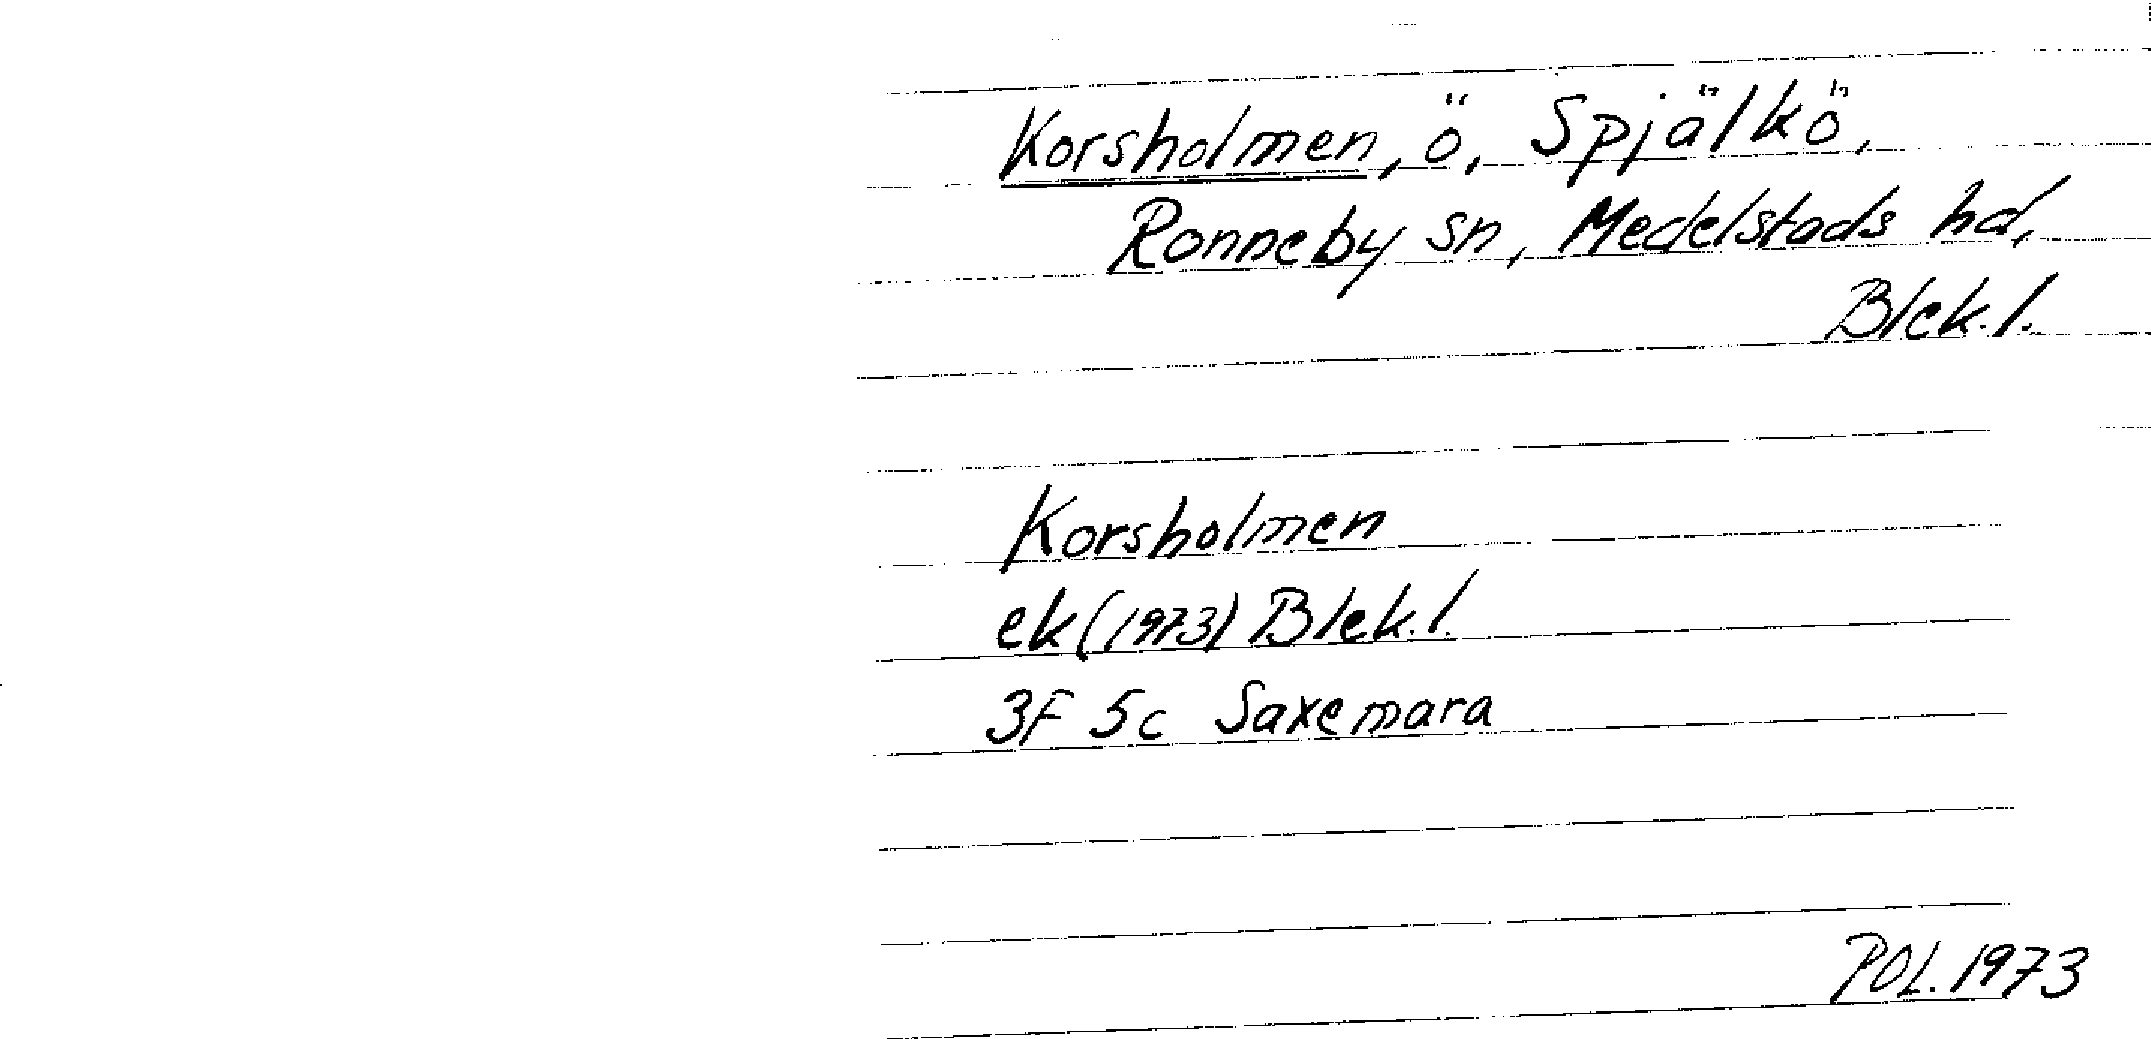 Korsholmen, ö, Spjälkö,
Ronneby sn, Medelstads hd,
Blek. l.
Korsholmen
ek (1973) Blek. l.
3F 5c Saxemara
POL. 1973